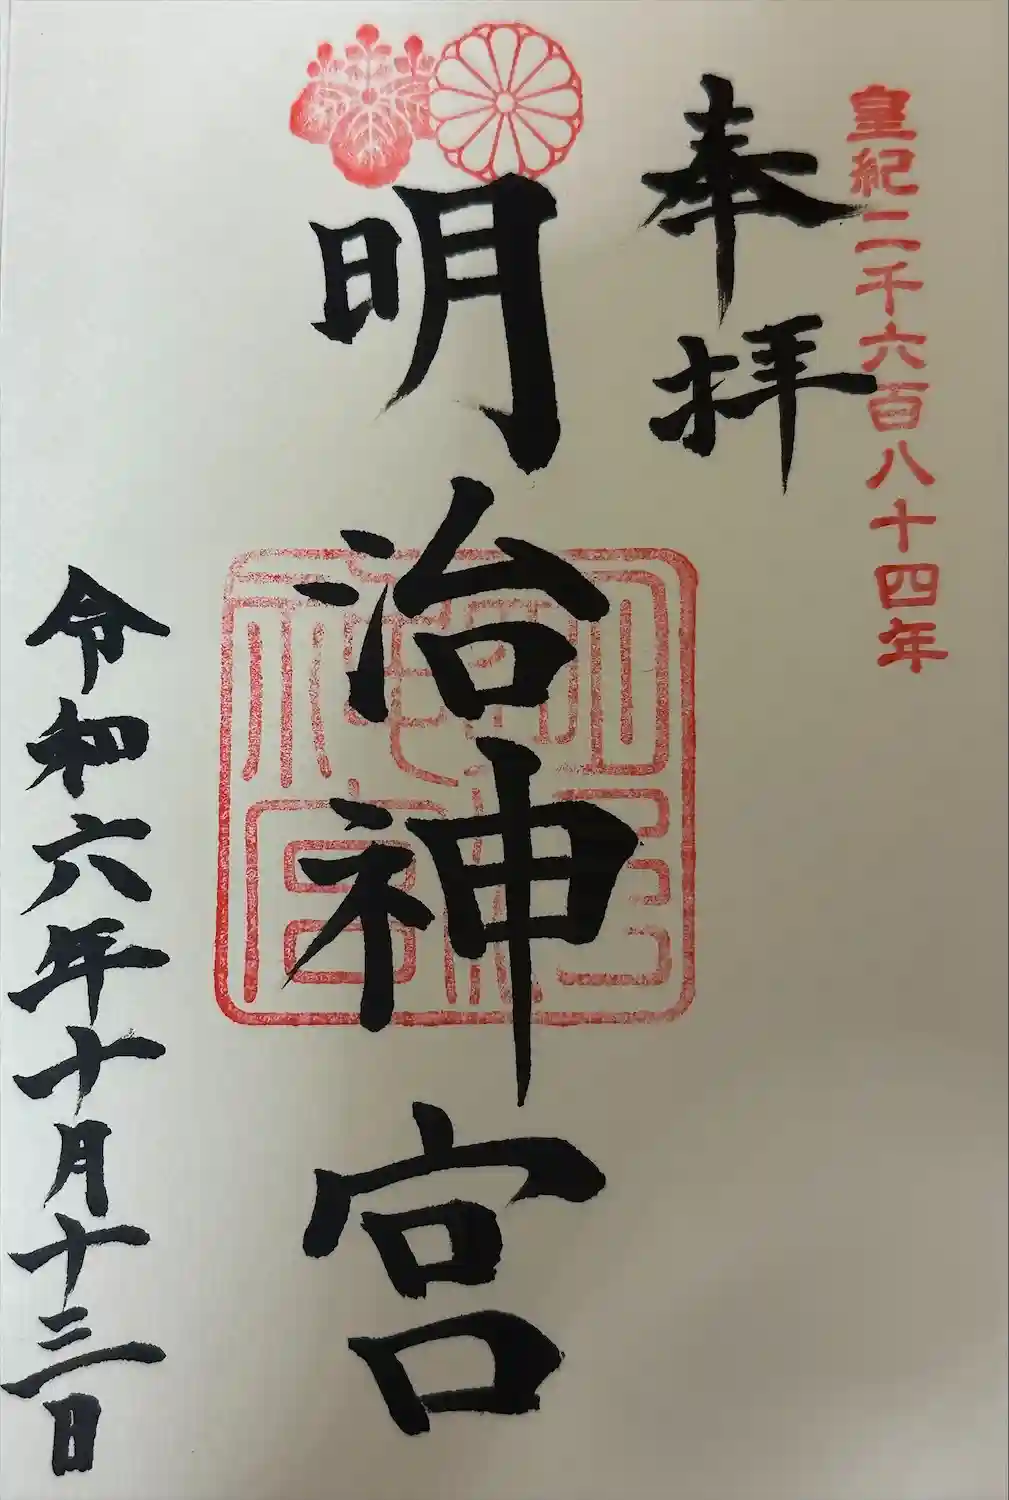 皇紀二千六百八十四年
奉拝
明治神宮
明治神宮
令和六年十月十三日